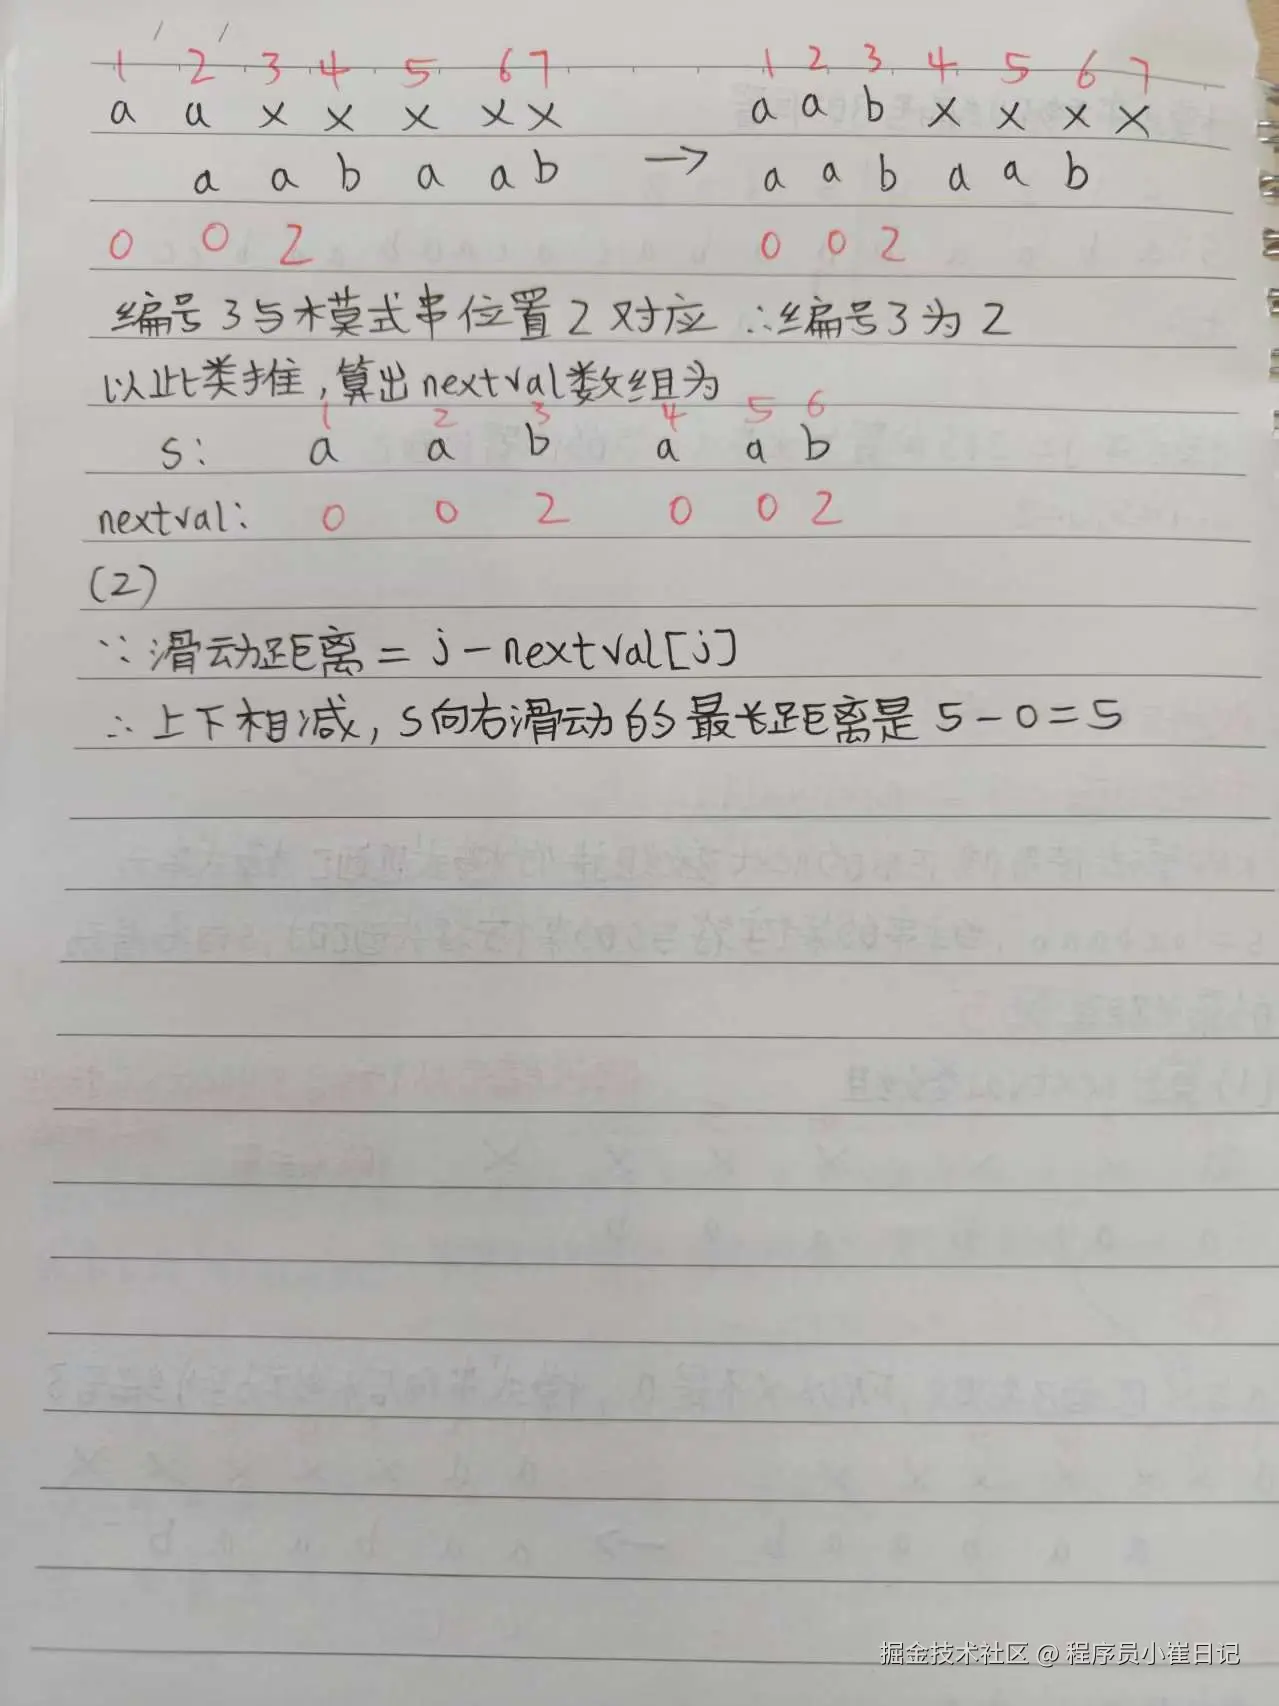 1 2 3 4 5 6 7 1 2 3 4 5 6 7
a a x x x x x a a b x x x x
a a b a a b → a a b a a b
0 0 2 0 0 2
编号3与模式串位置2对应 ∴编号3为2
以此类推,算出nextval数组为
1 2 3 4 5 6
s: a a b a a b
nextval: 0 0 2 0 0 2
(2)
∵滑动距离=j-nextval[j]
∴上下相减,S向右滑动的最长距离是5-0=5
掘金技术社区 @ 程序员小崔日记